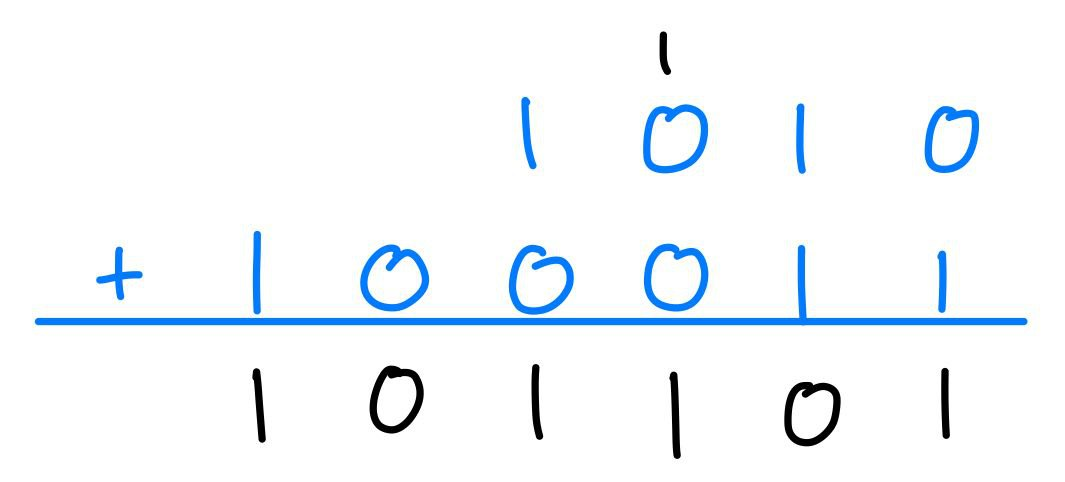 1
1 0 1 0
+ 1 0 0 0 1 1
1 0 1 1 0 1